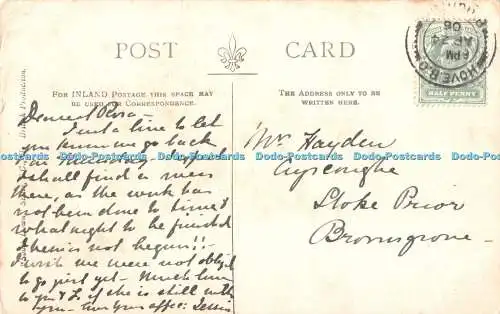 POST CARD
FOR INLAND POSTAGE THIS SPACE MAY
BE USED FOR CORRESPONDENCE.
THE ADDRESS ONLY TO BE
WRITTEN HERE.
HOVE B.O.
PM
AP 24
06
HALF PENNY
Dearest
Just a line to let
you know we go back
on
I shall find a mess
there, as the work has
not been done to time &
what ought to be finished
then is not begun!!-
I wish we were not oblig'd
to go just yet - Much love
to you & L. if she is still with
you - Ever yours affec:
Mrs Hayden
Stoke Prior
Bromsgrove
Dodo-Postcards Dodo-Postcards Dodo-Postcards Dodo-Postcards Dodo-Postcards Dodo-Postcards